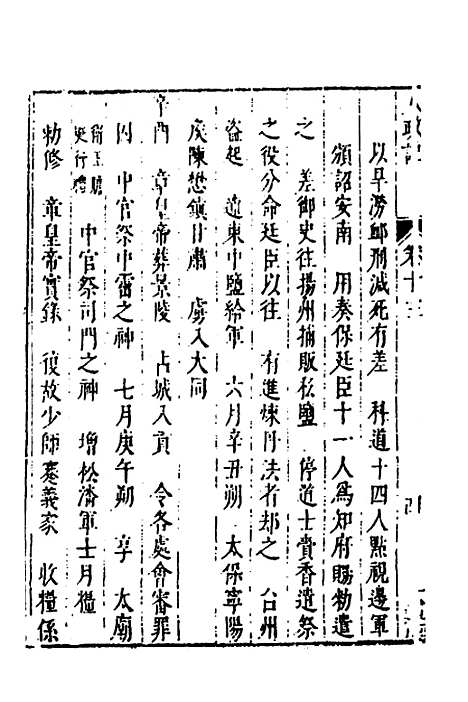 卷十三
以旱澇邺刑減死有差　科道十四人點視邊軍
頒詔安南　用奏保廷臣十一人爲知府賜勑遣
之　差御史往揚州捕販私鹽　停道士賫香遣祭
之役分命廷臣以往　有進煉丹法者却之　台州
盜起　遼東中鹽給軍　六月辛丑朔　太保寧陽
侯陳懋鎮甘肅　虜入大同
辛酉　章皇帝葬景陵　占城入貢　令各處會審罪
囚　中官祭中霤之神　七月庚午朔　享　太廟
行禮　中官祭司門之神　增松潘軍士月糧
勑修　章皇帝實錄　復故少師蹇義家　收糧係